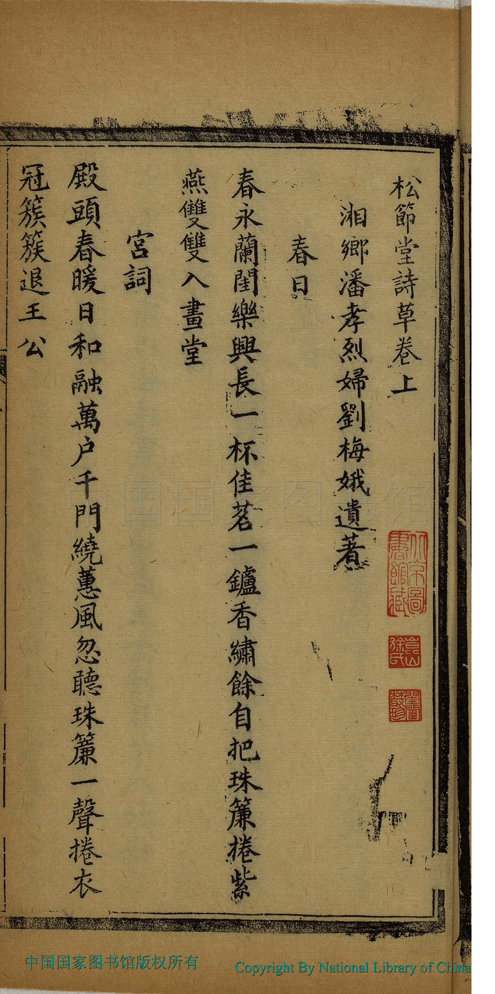 松節堂詩草卷上
湘鄉潘孝烈婦劉梅娥遺著
春日
春永蘭閨樂興長一杯佳茗一鑪香繡餘自把珠簾捲紫
燕雙雙入畫堂
宮詞
殿頭春暖日和融萬户千門繞蕙風忽聽珠簾一聲捲衣
冠簇簇退王公
中国国家图书馆版权所有
Copyright By National Library of China